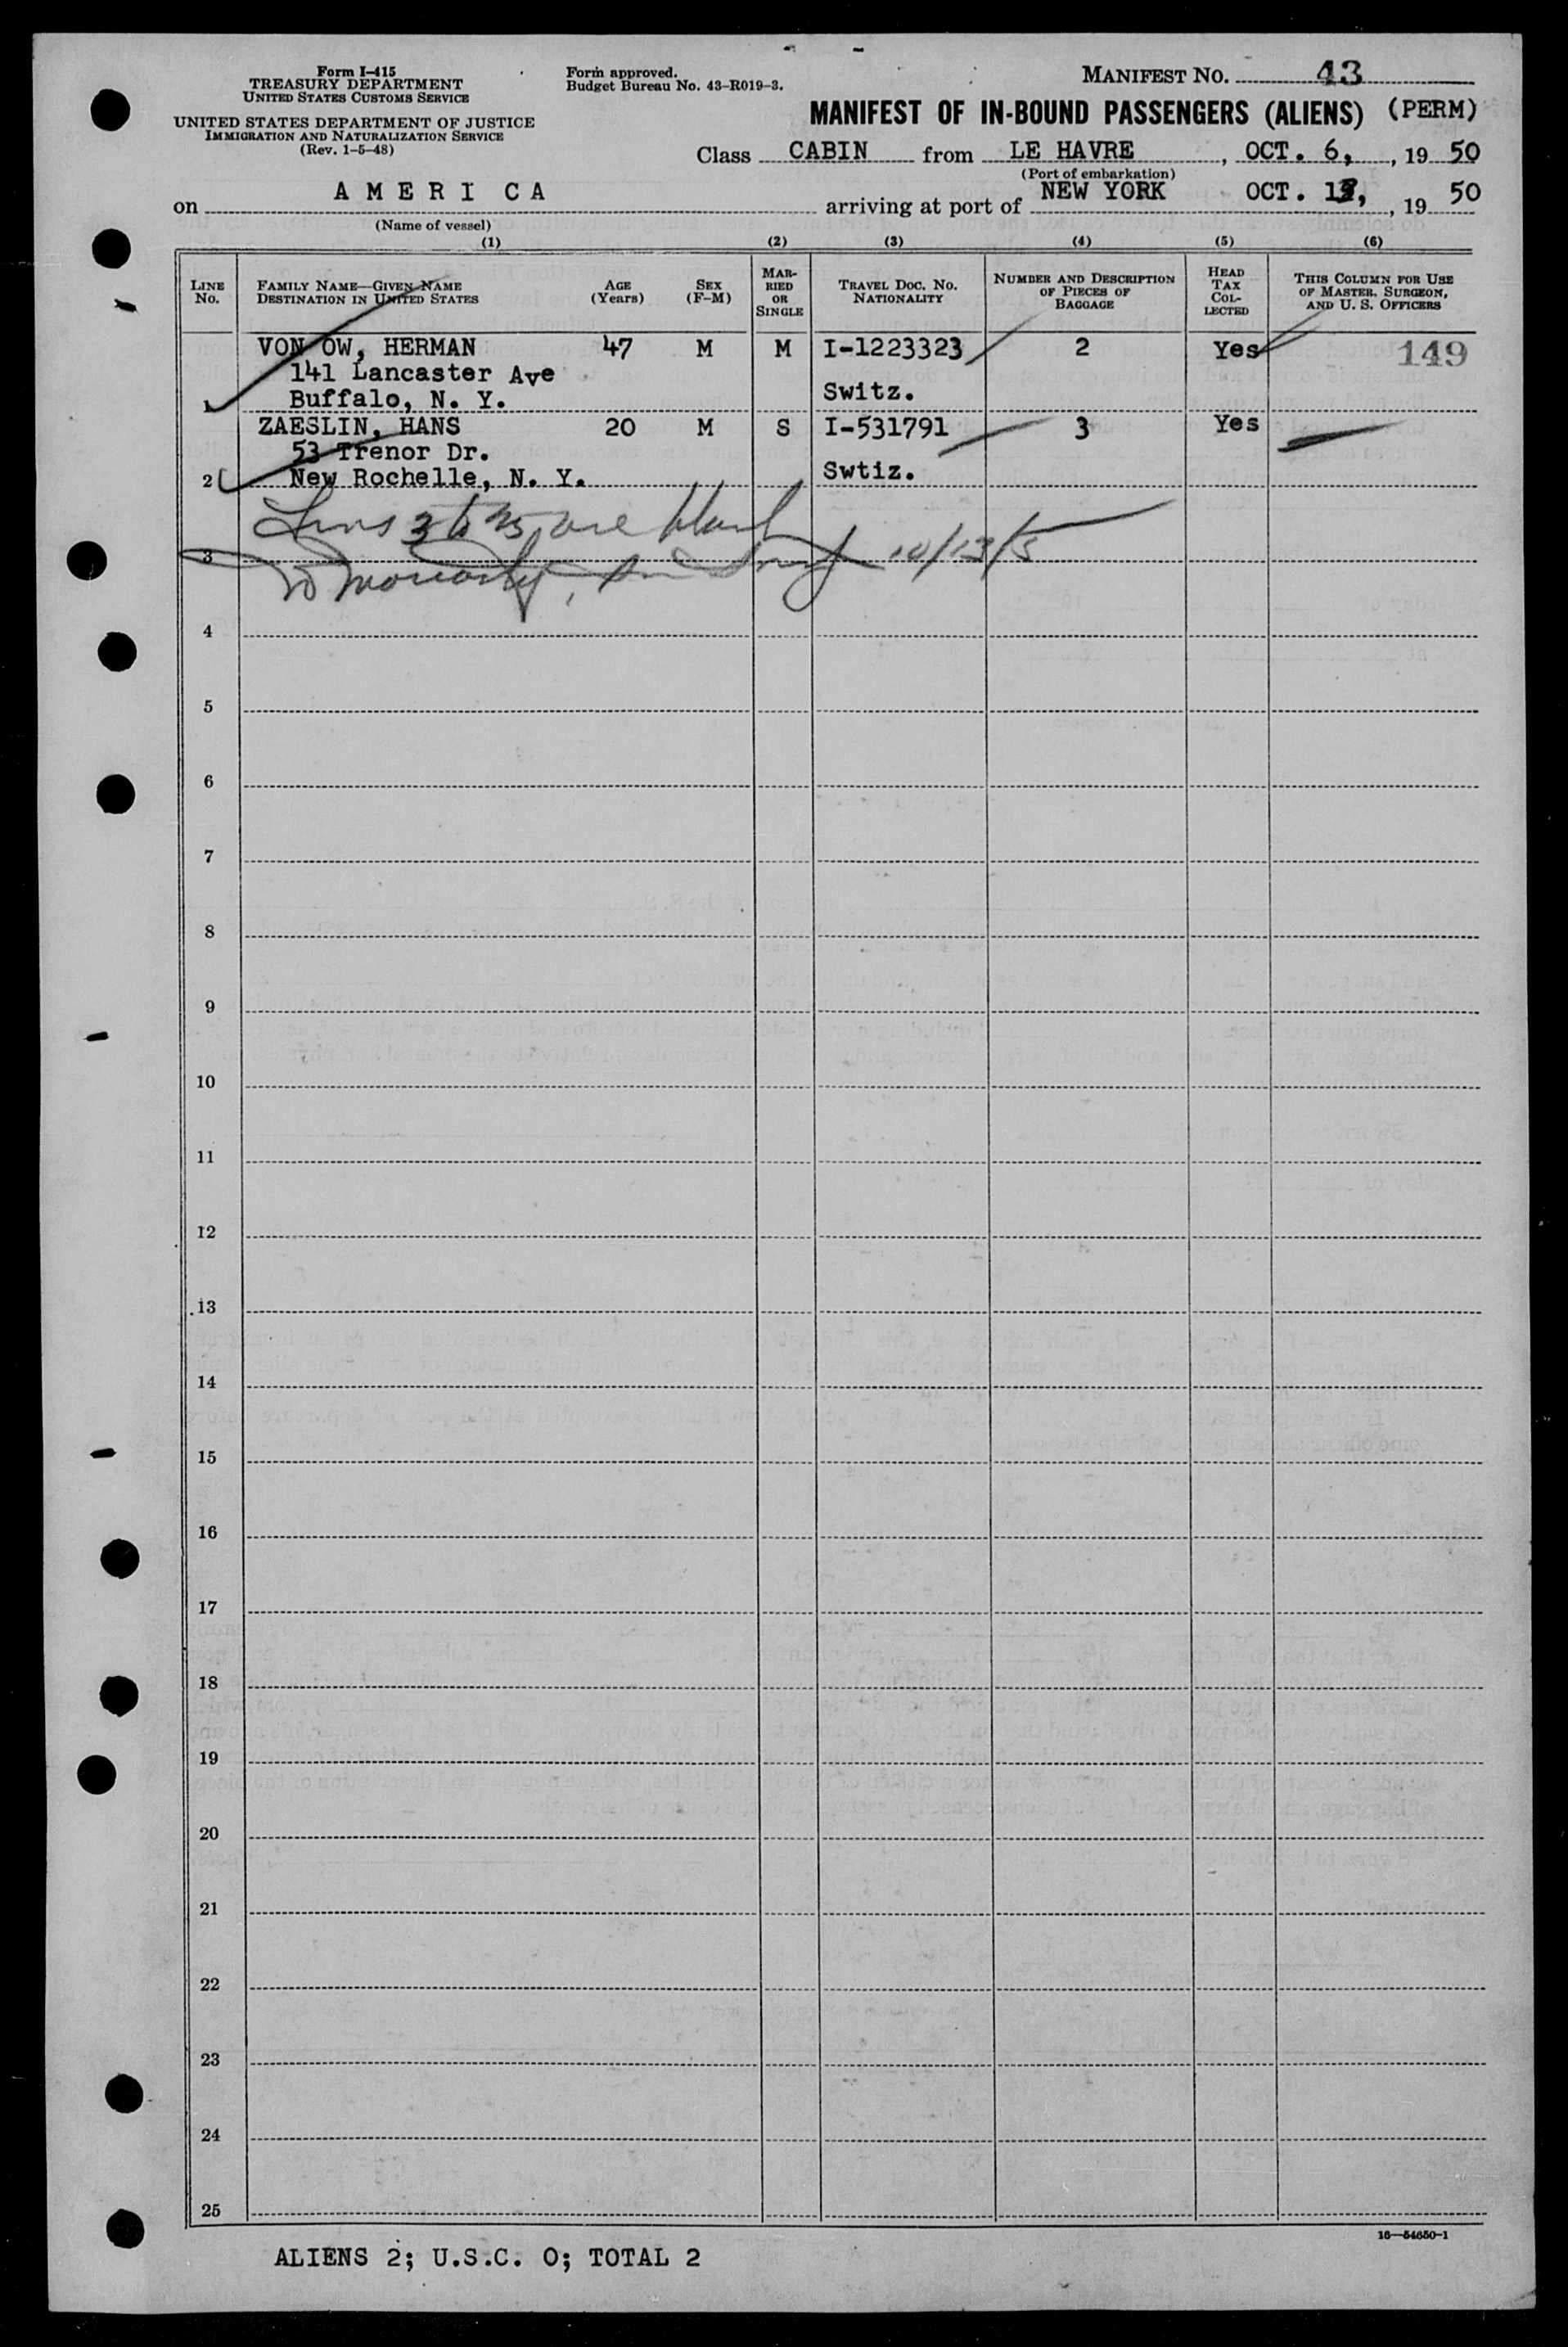 Form I-415
TREASURY DEPARTMENT
UNITED STATES CUSTOMS SERVICE
UNITED STATES DEPARTMENT OF JUSTICE
IMMIGRATION AND NATURALIZATION SERVICE
(Rev. 1-5-48)
Form approved.
Budget Bureau No. 43-R019-3.
MANIFEST NO. 43
MANIFEST OF IN-BOUND PASSENGERS (ALIENS) (PERM)
Class CABIN from LE HAVRE, OCT. 6, 19 50
(Port of embarkation)
on A M E R I C A arriving at port of NEW YORK OCT. 13, 19 50
(Name of vessel)
(1) (2) (3) (4) (5) (6)
LINE No.
FAMILY NAME—GIVEN NAME
DESTINATION IN UNITED STATES
AGE (Years)
SEX (F-M)
MARRIED OR SINGLE
TRAVEL DOC. NO.
NATIONALITY
NUMBER AND DESCRIPTION OF PIECES OF BAGGAGE
HEAD TAX COLLECTED
THIS COLUMN FOR USE OF MASTER, SURGEON, AND U. S. OFFICERS
VON OW, HERMAN 47 M M I-1223323 2 Yes 149
141 Lancaster Ave
1 Buffalo, N. Y. Switz.
ZAESLIN, HANS 20 M S I-531791 3 Yes
53 Trenor Dr.
2 New Rochelle, N. Y. Swtiz.
Lines 3 to 25 are blank
3
10/13/5
4
5
6
7
8
9
10
11
12
13
14
15
16
17
18
19
20
21
22
23
24
25
16—54650-1
ALIENS 2; U.S.C. 0; TOTAL 2